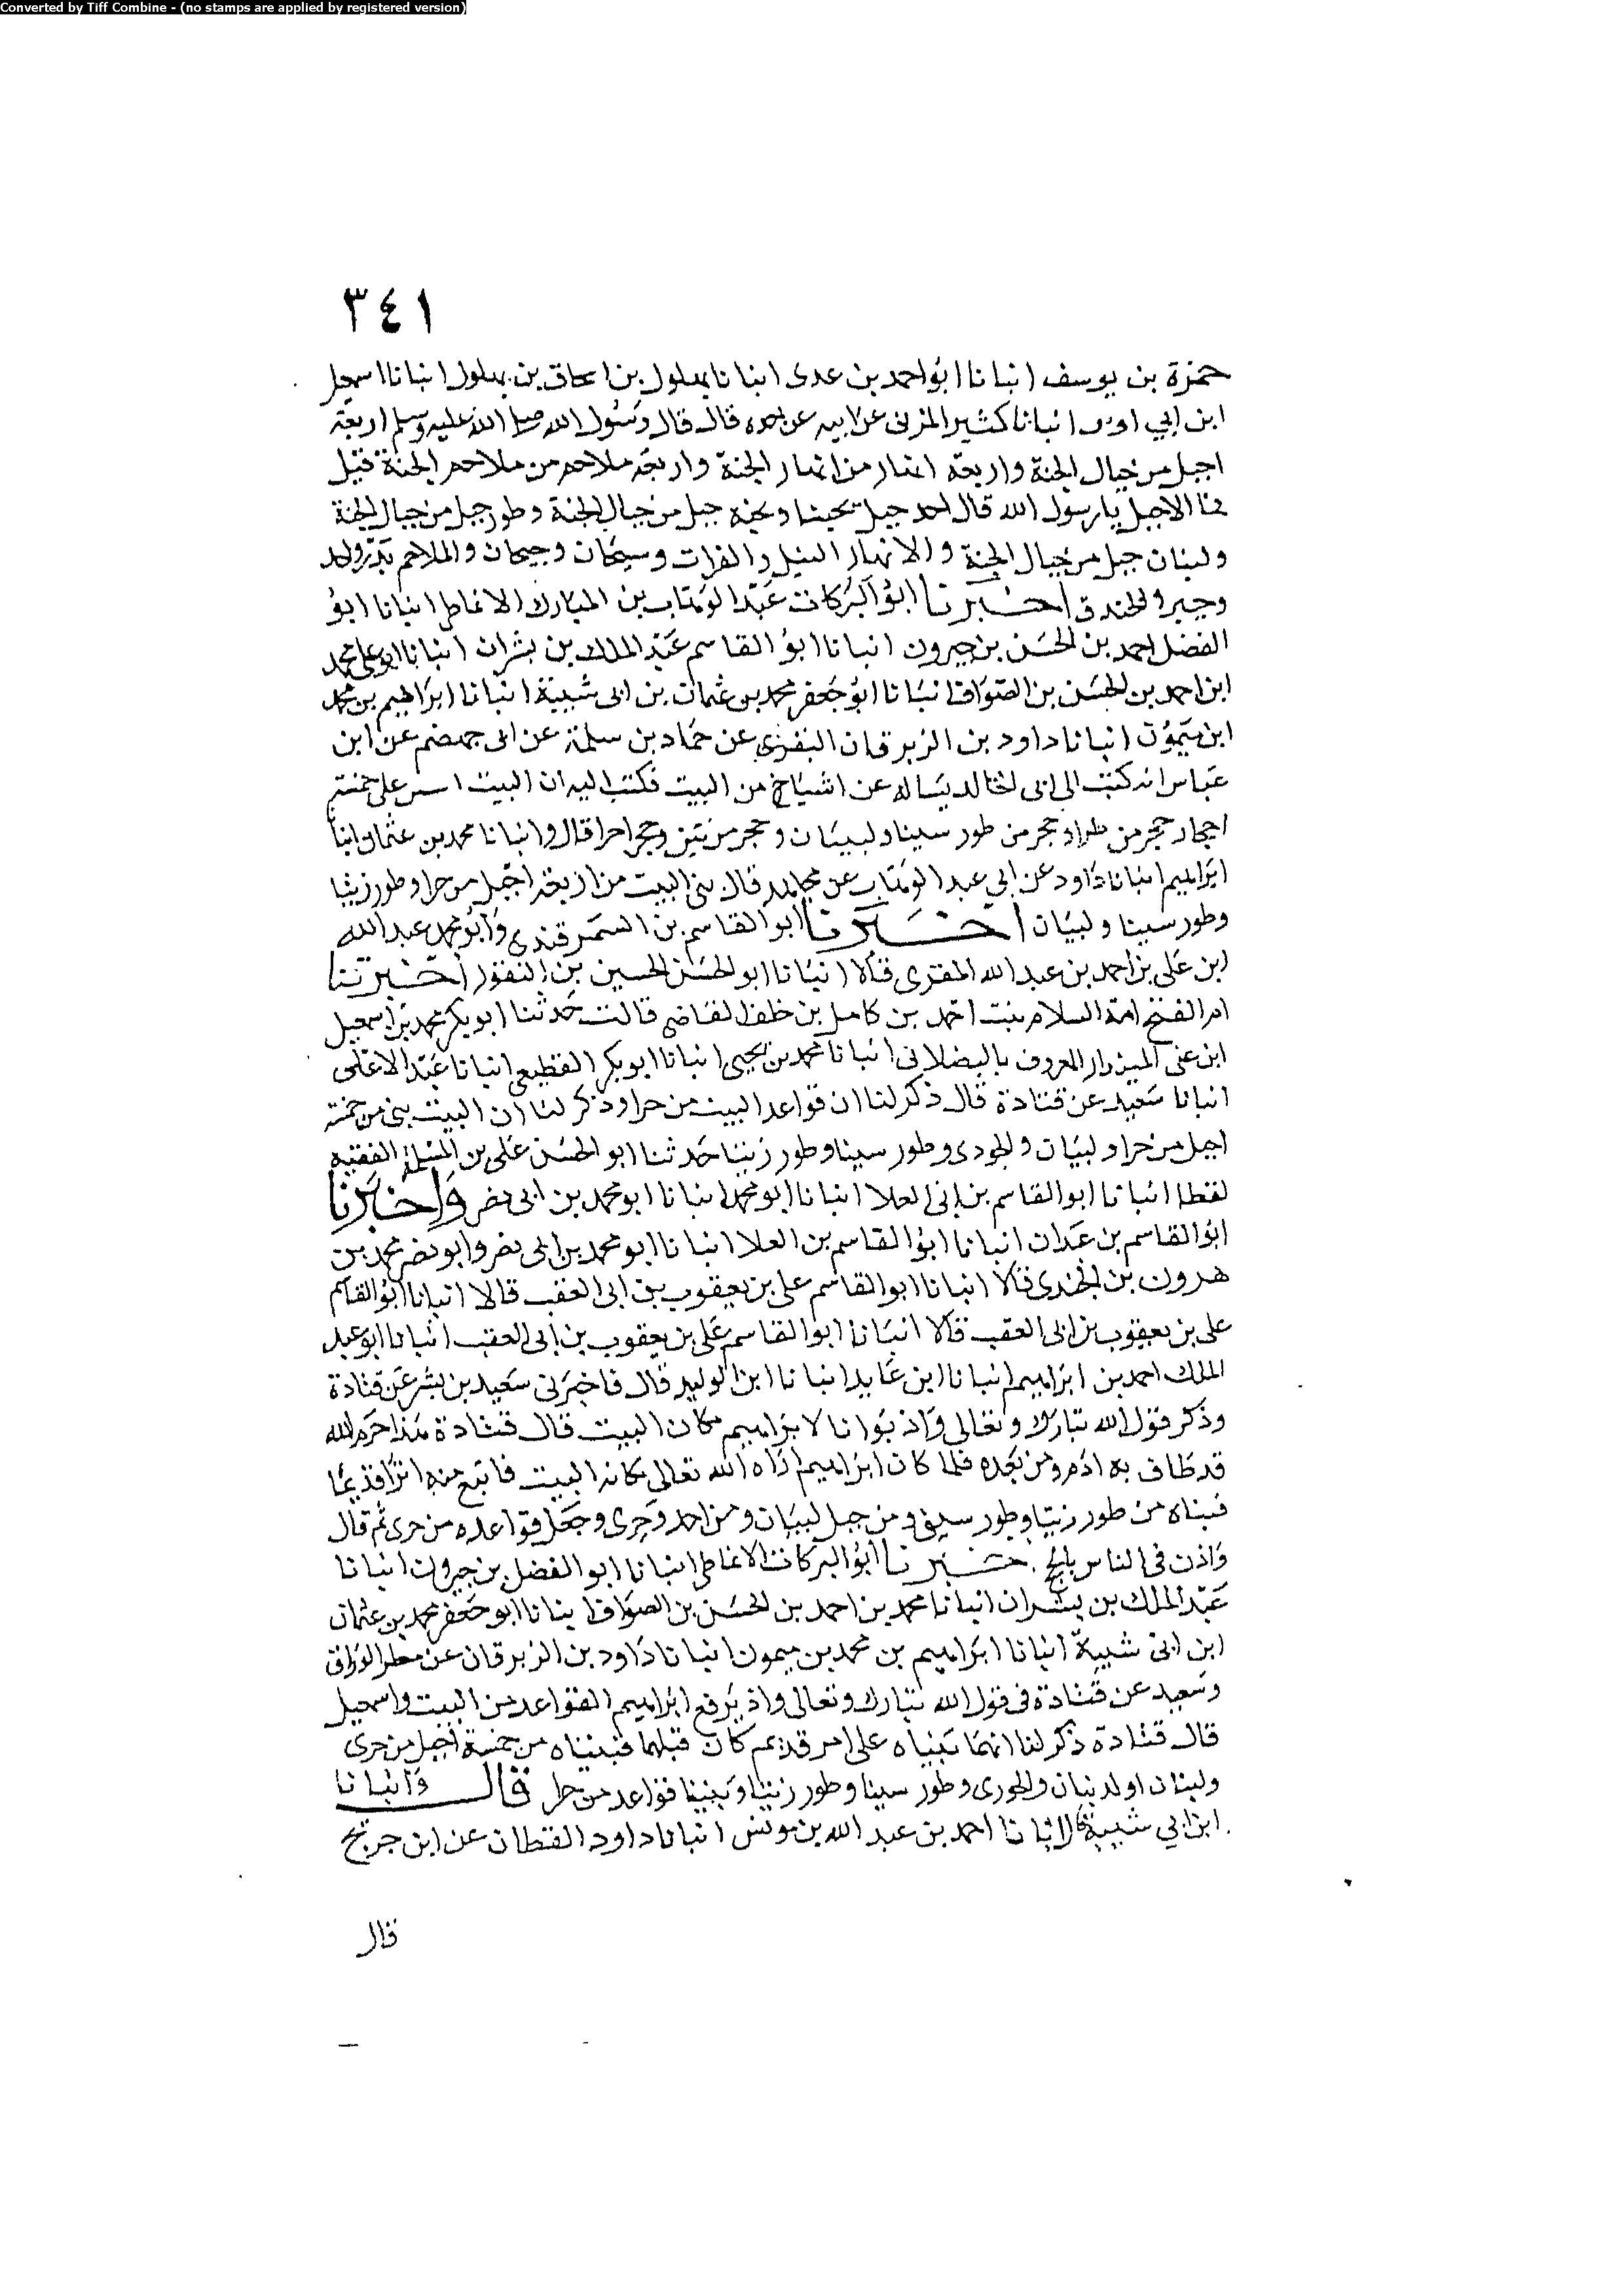 Converted by Tiff Combine - (no stamps are applied by registered version)
٣٤١
حمزة بن يوسف انبانا ابو احمد بن عدى ابنانا بهلول بن اسحاق بن بهلول انبانا اسمعيل
ابن ابي اويس انبانا كثير المزنى عن ابيه عن جده قال قال رسول الله صلى الله عليه وسلم اربعة
اجبل من جبال الجنة واربعة انهار من انهار الجنة واربعة ملاحم من ملاحم الجنة قيل
فما الاجبل يا رسول الله قال احد جبل يحبنا ونحبه جبل من جبال الجنة وطور جبل من جبال الجنة
ولبنان جبل من جبال الجنة والانهار النيل والفرات وسيحان وجيحان والملاحم بدر واحد
وخيبر والخندق اخبرنا ابو البركات عبد الوهاب بن المبارك الانماطى انبانا ابو
الفضل احمد بن الحسن بن خيرون انبانا ابو القاسم عبد الملك بن بشران انبانا ابو على محمد
ابن احمد بن الحسن بن الصواف انبانا ابو جعفر محمد بن عثمان بن ابى شيبة انبانا ابراهيم بن محمد
ابن ميمون انبانا داود بن الزبرقان عن حماد بن سلمة عن ابى جهضم عن ابن
عباس انه كتب الى ابى الخالد يساله عن اشياخ من البيت فكتب اليه ان البيت اسس على خمسة
احجار حجر من طور وحجر من طور سينا ولبنان وحجر من وحجر احرا قال وانبانا محمد بن عثمان انبا
ابراهيم انبانا داود عن ابي عبد الوهاب عن مجاهد قال بنى البيت من اربعة اجبل من حرا وطور زيتا
وطور سينا ولبنان اخبرنا ابو القاسم بن السمرقندى وابو محمد عبد الله
ابن على بن احمد بن عبد الله المقرى قالا انبانا ابو الحسن الحسين بن النقور اخبرتنا
ام الفتح امة السلام بنت احمد بن كامل بن خلف القاضى قالت حدثنا ابو بكر محمد بن اسمعيل
ابن على البندار المعروف بالبصلانى انبانا محمد بن يحيى انبانا ابو بكر القطيعى انبانا عبد الاعلى
انبانا سعيد عن قتادة قال ذكر لنا ان قواعد البيت من حرا وذكر لنا ان البيت بنى من خمسة
اجبل من حرا ولبنان والجودى وطور سينا وطور زيتا حدثنا ابو الحسن على بن المسلم الفقيه
لفظا انبانا ابو القاسم بن ابى العلا انبانا ابو محمد انبانا ابو محمد بن ابى نصر واخبرنا
ابو القاسم بن عبدان انبانا ابو القاسم بن العلا انبانا ابو محمد بن ابى نصر وابو نصر محمد بن
هرون بن الجندى قالا انبانا ابو القاسم على بن يعقوب بن ابى العقب قالا انبانا ابو القاسم
على بن يعقوب بن ابى العقب قالا انبانا ابو القاسم على بن يعقوب بن ابى العقب انبانا ابو عبد
الملك احمد بن ابراهيم انبانا ابن عايد انبانا ابن الوليد قال فاخبرنى سعيد بن بشر عن قتادة
وذكر قول الله تبارك وتعالى واذ بوانا لابراهيم مكان البيت قال قتادة هذا حرم الله
قد طاف به ادم ومن بعده فلما كان ابراهيم اراه الله تعالى مكانه البيت فاتبع منه اثرا قديما
فبناه من طور زيتا وطور سينى ومن جبل لبنان ومن احد وحرى وجعل قواعده من حرى ثم قال
واذن فى الناس بالحج اخبرنا ابو البركات الانماطى انبانا ابو الفضل بن خيرون انبانا
عبد الملك بن بشران انبانا محمد بن احمد بن الحسن بن الصواف ابنانا ابو جعفر محمد بن عثمان
ابن ابى شيبة انبانا ابراهيم بن محمد بن ميمون انبانا داود بن الزبرقان عن مطر الوراق
وسعيد عن قتادة فى قول الله تبارك وتعالى واذ يرفع ابراهيم القواعد من البيت واسمعيل
قال قتادة ذكر لنا انهما بنياه على امر قديم كان قبلهما فبنياه من خمسة اجبل من حرى
ولبنان والجودى وطور سينا وطور زيتا وبنينا قواعد من حرا قال وانبانا
ابن ابي شيبة قالا انبانا احمد بن عبد الله بن يونس انبانا داود القطان عن ابن جريج
قال